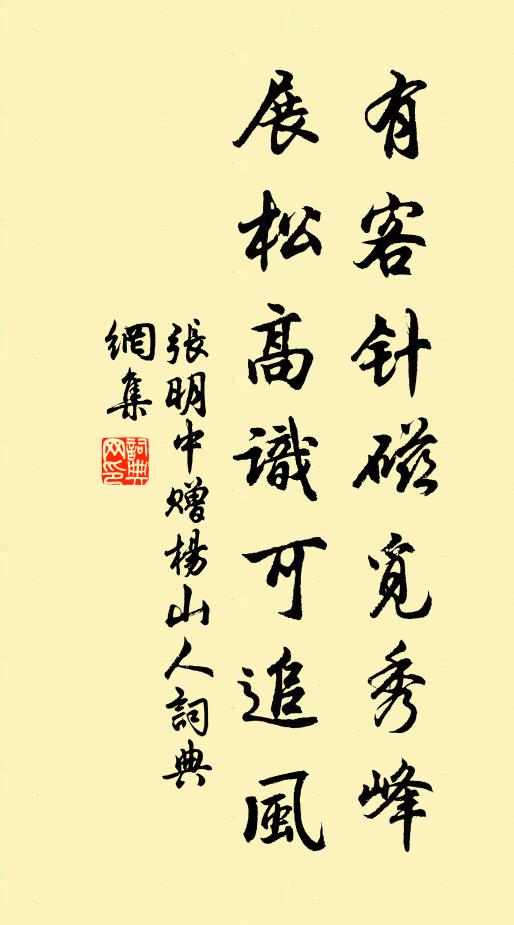 有客针磁覓秀峰
展松高識可追風
張明中贈楊山人詞典
網集
詞典
网印